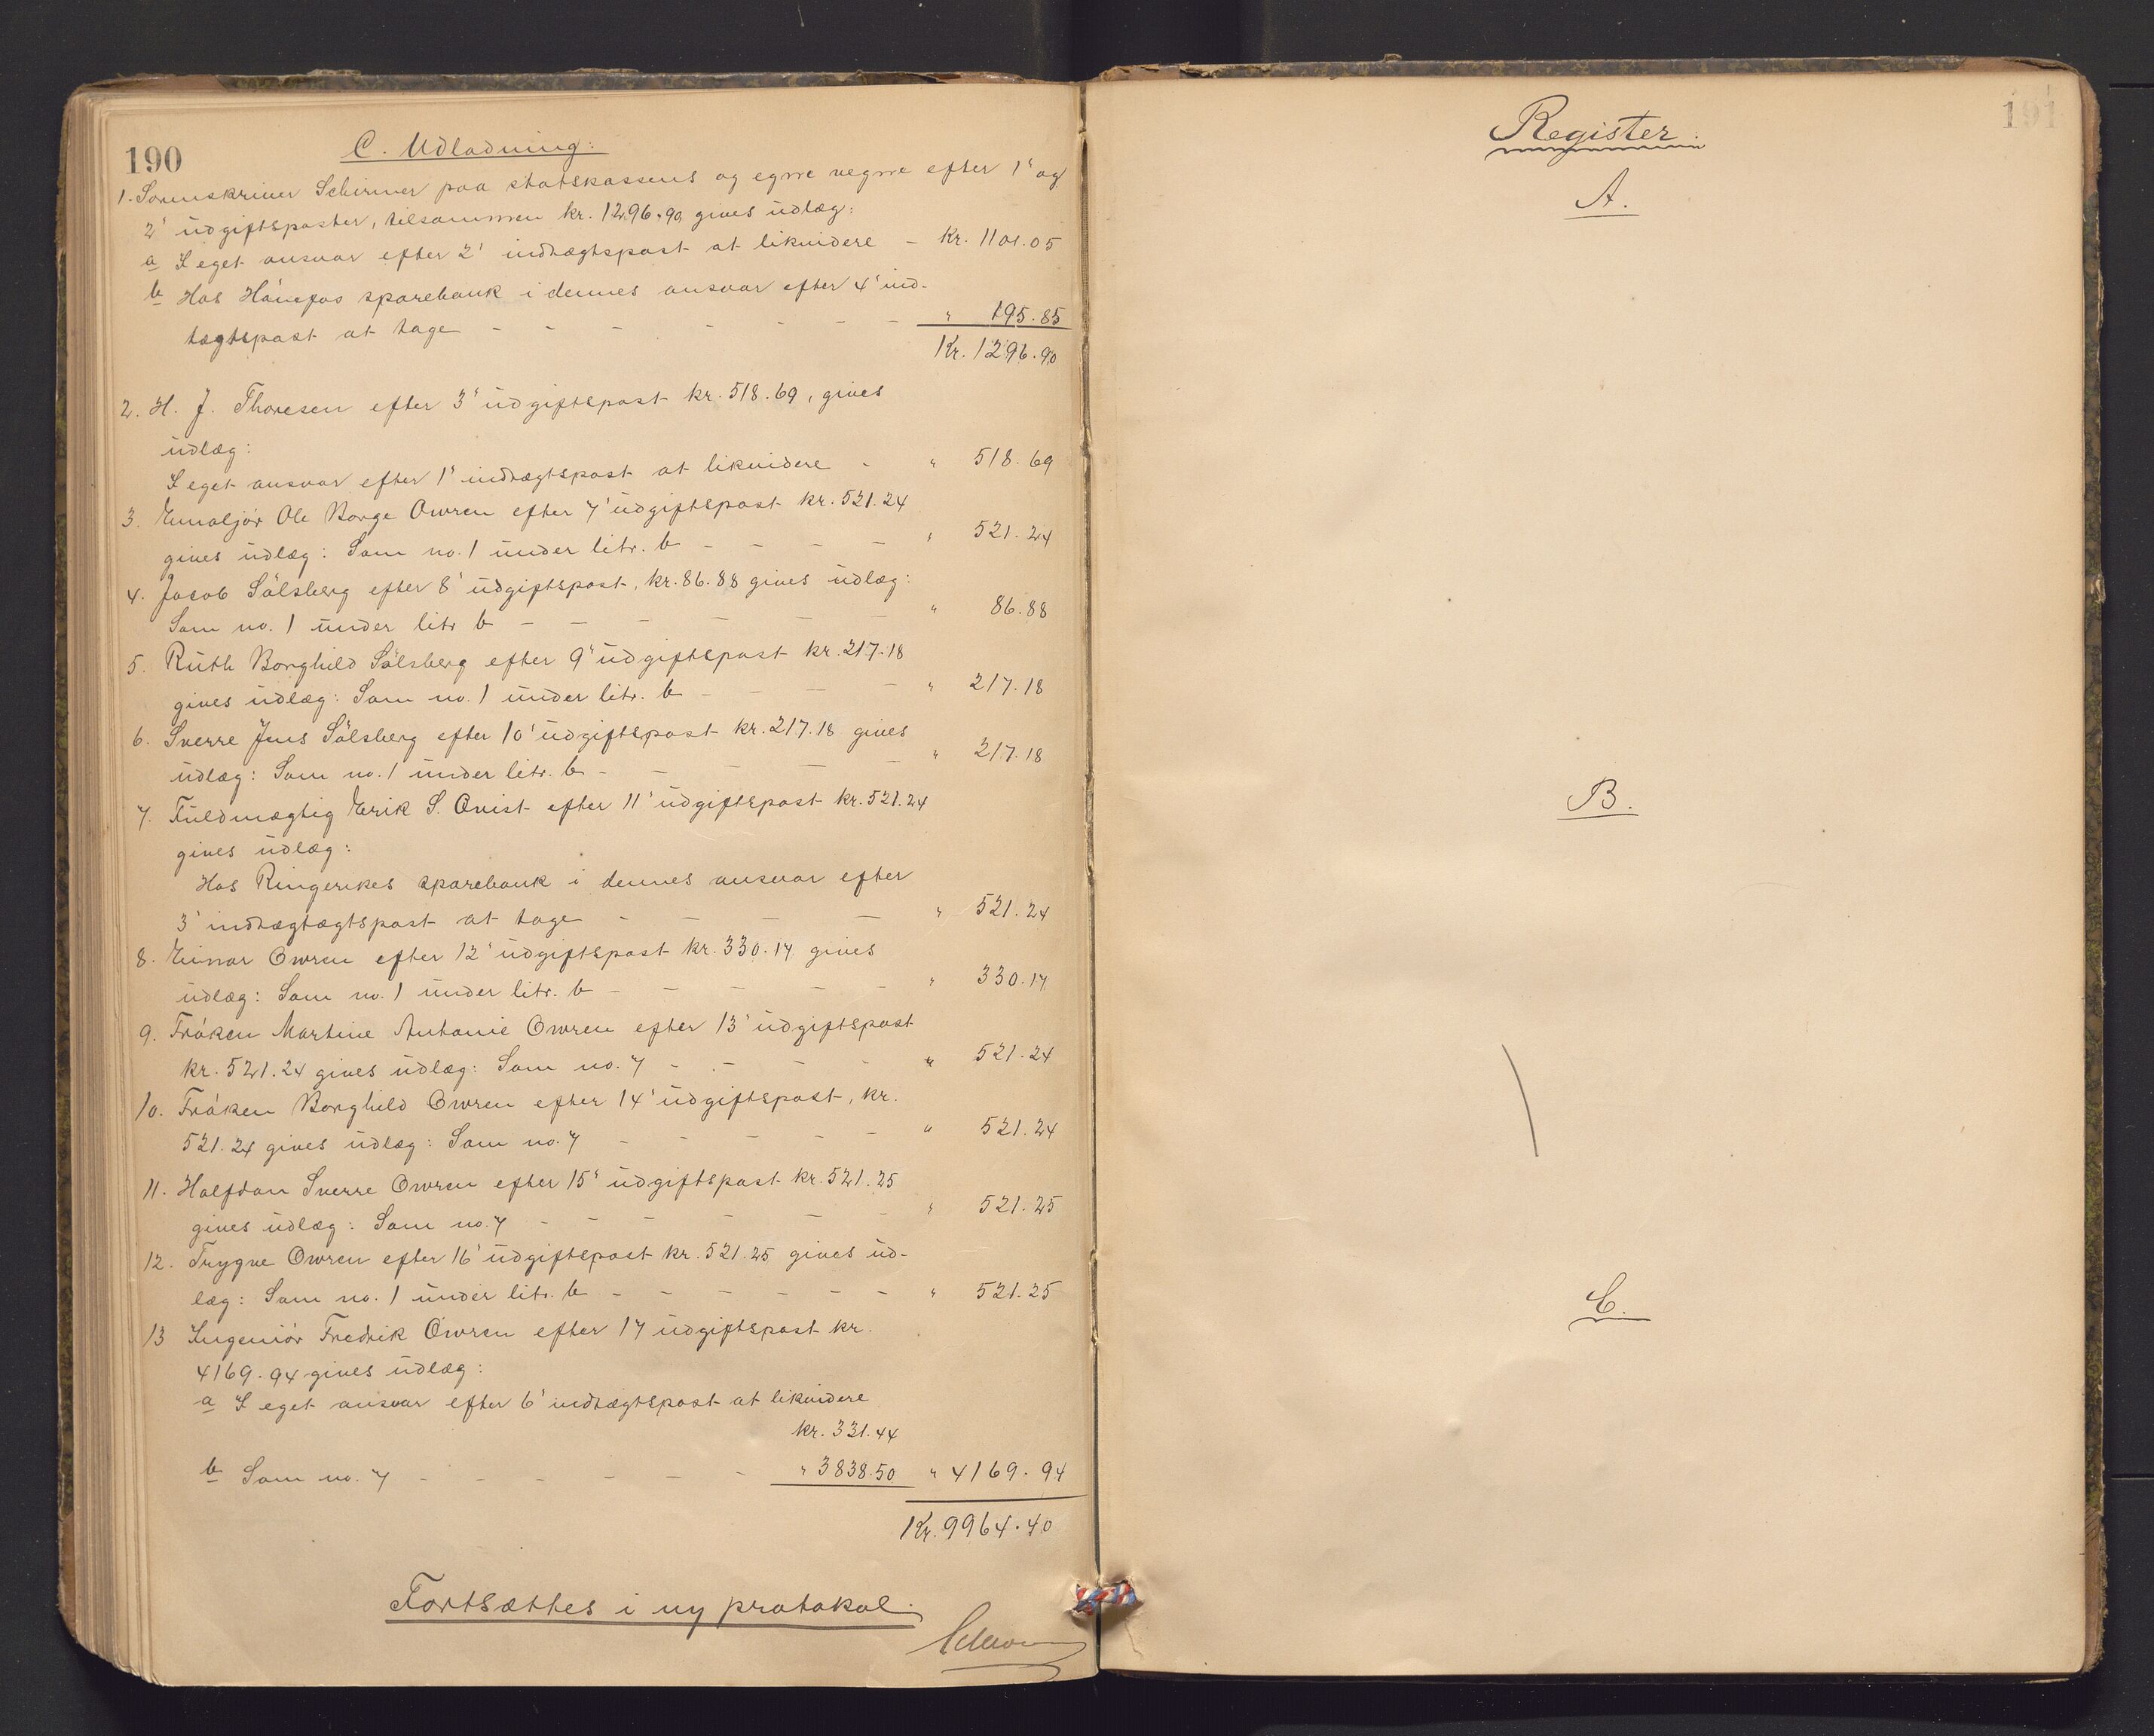 190
C. Udladning:
1. Sorenskriver Schirmer paa statskassens og egne vegne efter 1' og
2' udgiftsposter, tilsammen kr. 1296.90 gives udlæg:
a I eget ansvar efter 2' indtægtspost at likvidere - Kr. 1101.05
b Hos Hönefos sparebank i dennes ansvar efter 4' ind-
tægtspost at tage - - - - - - - " 195.85
Kr. 1296.90
2. H. J. Thoresen efter 3' udgiftspost kr. 518.69, gives
udlæg:
I eget ansvar efter 1' indtægtspost at likvidere - " 518.69
3. Ole Borge Owren efter 7' udgiftspost kr. 521.24
gives udlæg: Som no. 1 under litr. b - - - - " 521.24
4. Jacob Sölsberg efter 8' udgiftspost, kr. 86.88 gives udlæg:
Som no. 1 under litr b - - - - - - " 86.88
5. Ruth Borghild Sölsberg efter 9' udgiftspost kr. 217.18
gives udlæg: Som no. 1 under litr. b - - - - " 217.18
6. Sverre Jens Sölsberg efter 10' udgiftspost kr. 217.18 gives
udlæg: Som no. 1 under litr. b - - - - - " 217.18
7. Fuldmægtig Erik S. Qvist efter 11' udgiftspost kr. 521.24
gives udlæg:
Hos Ringerikes sparebank i dennes ansvar efter
3' indtægtægtspost at tage - - - - " 521.24
8. Einar Owren efter 12' udgiftspost kr. 330.17 gives
udlæg: Som no. 1 under litr. b - - - - - " 330.17
9. Fröken Martine Antonie Owren efter 13' udgiftspost
kr. 521.24 gives udlæg: Som no. 7 - - - - " 521.24
10. Fröken Borghild Owren efter 14' udgiftspost, kr.
521.24 gives udlæg: Som no. 7 - - - - - " 521.24
11. Halfdan Sverre Owren efter 15' udgiftspost kr. 521.25
gives udlæg: Som no. 7 - - - - - - " 521.25
12. Trygve Owren efter 16' udgiftspost kr. 521.25 gives ud-
læg: Som no. 1 under litr. b - - - - - - " 521.25
13 Ingeniör Fredrik Owren efter 17 udgiftspost kr.
4169.94 gives udlæg:
a I eget ansvar efter 6' indtægtspost at likvidere
kr. 331.44
b Som no. 7 - - - - - - " 3838.50 " 4169.94
Kr. 9964.40
Fortsættes i ny protokol.
191
Register:
A.
B.
C.